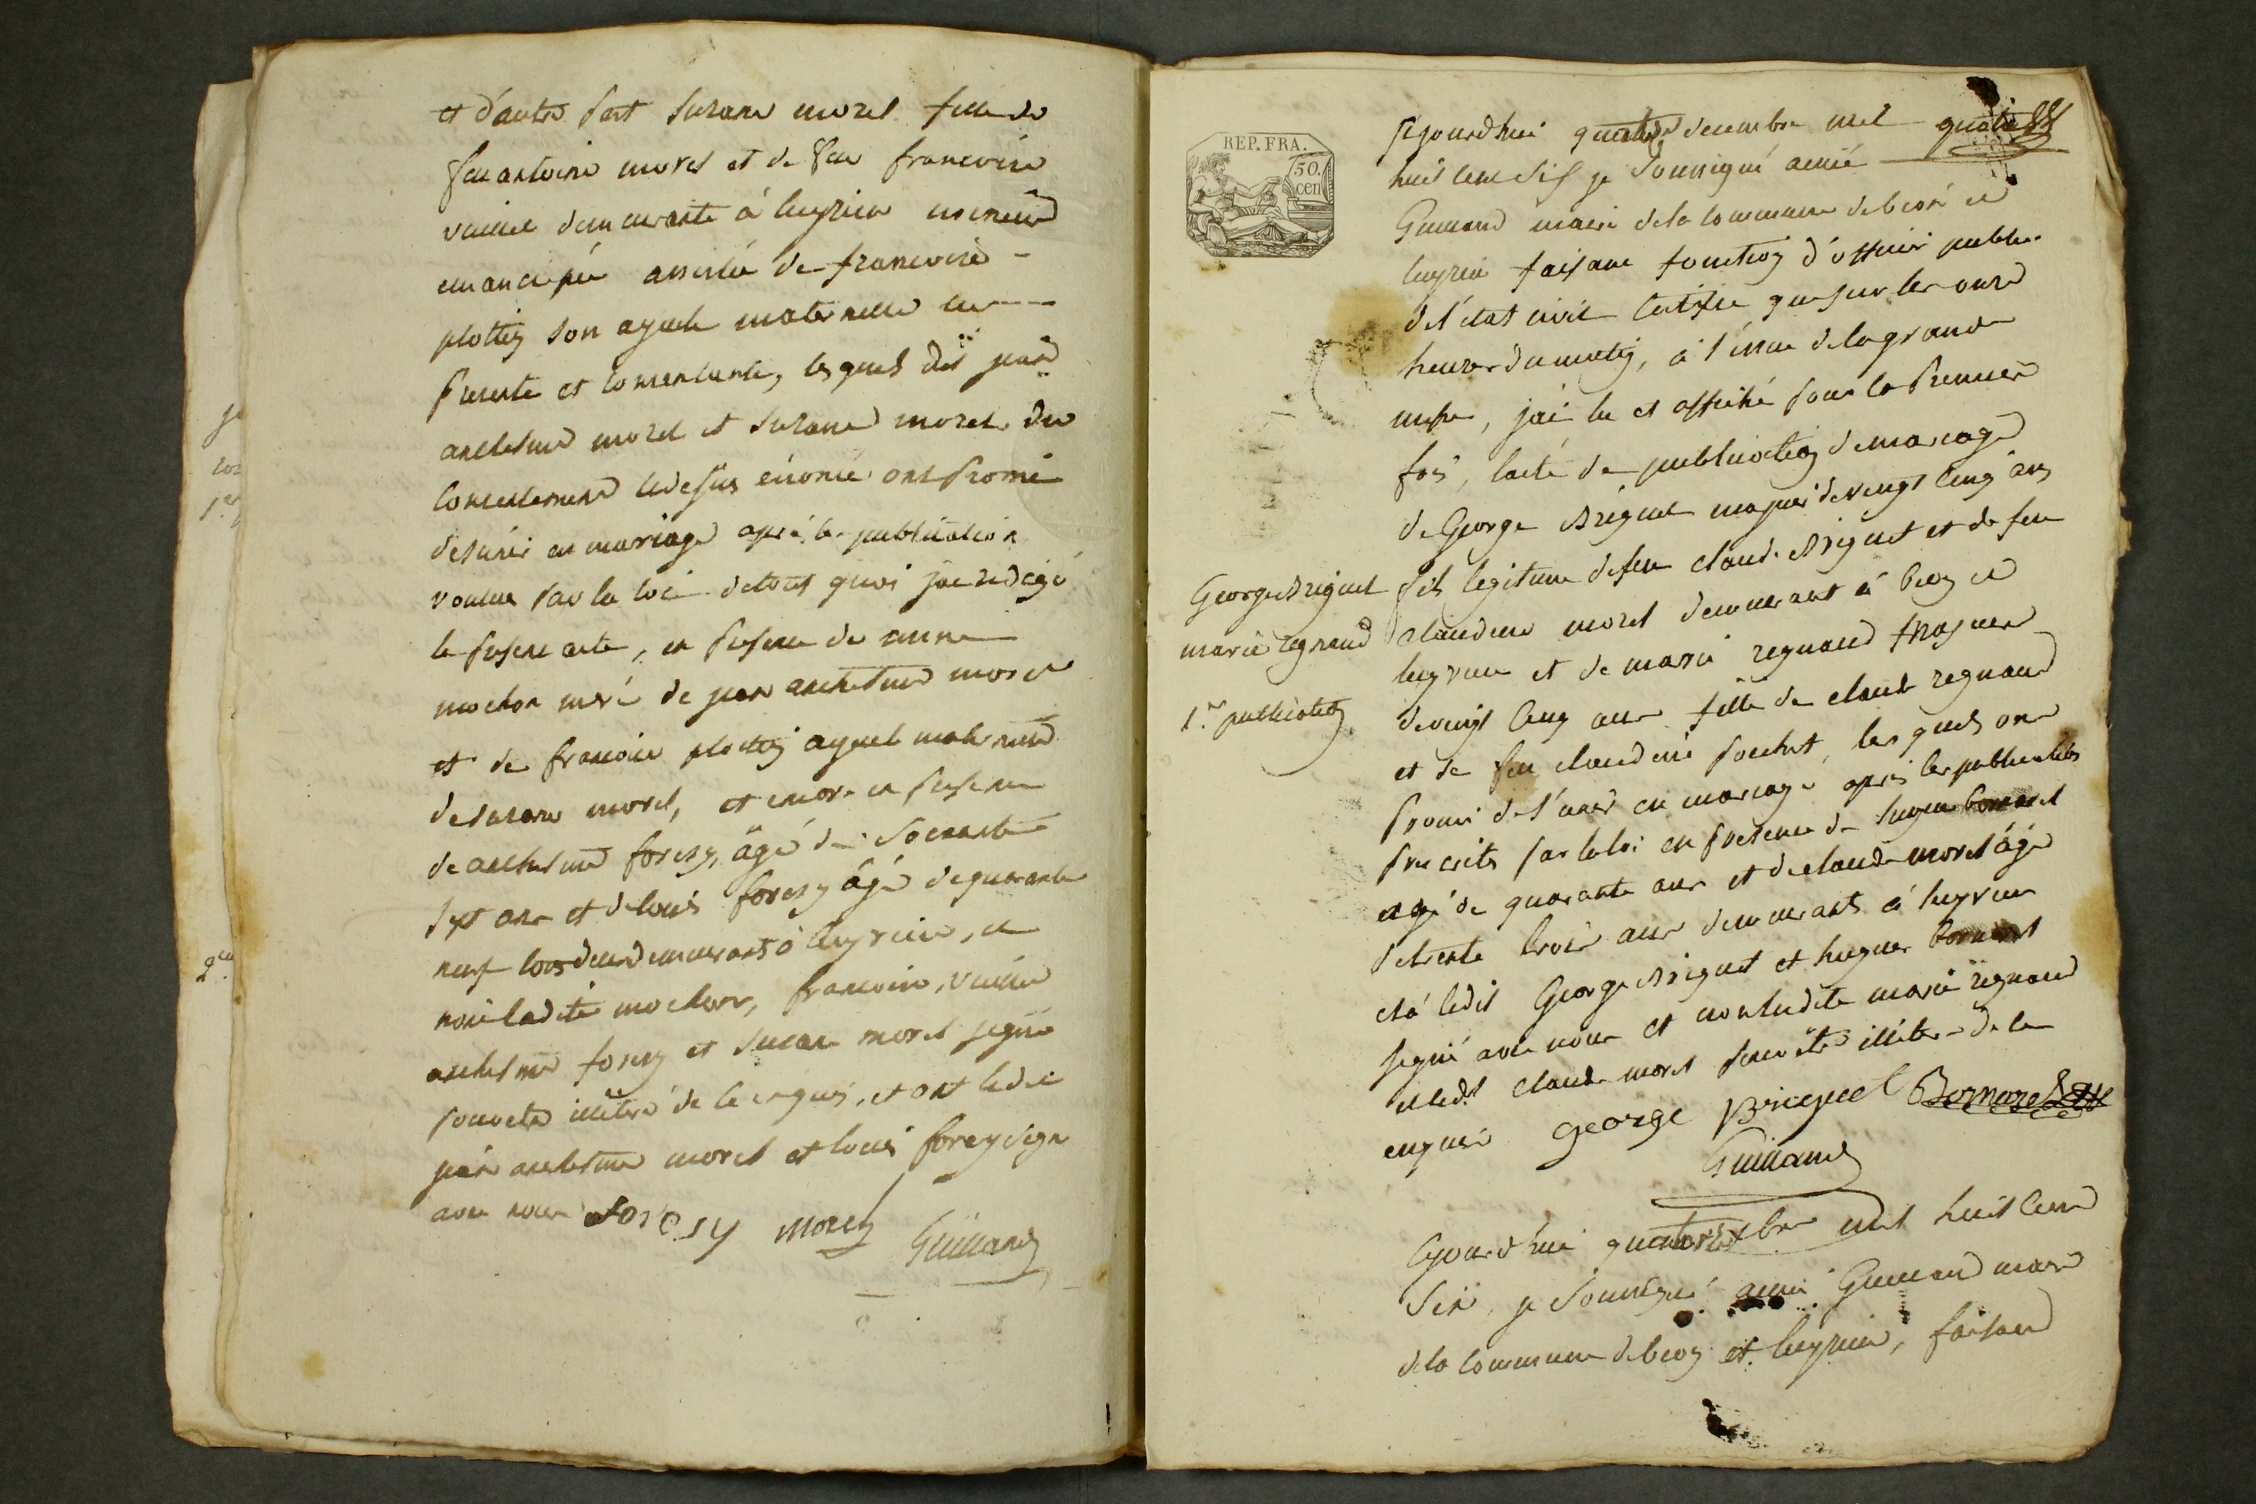 et d'autre part Suzane morel fille de
feu antoine morel et de feu francoise
vuillet demeurante à leyrieu mineure
emancipée assistée de francoise
plottiy son ayeule maternelle
presente et consentante, lesquels dit jean
anthelme morel et Suzane morel du
consentement cidessus énoncé ont promi
de s'unir en mariage après les publication
voulue par la loi de tout quoi j'ai redigé
le present acte, en presence de anne
mochon meré de jean anthelme morel
et de francoise plottiy ayeul maternelle
de Suzane morel, et encore en presence
de anthelme foresy, âgé de soixante
sept ans et de louis foresy âgé de quarante
neuf tous deux demeurants à leyrieu, et
non ladite mochon, francoise vuillet
anthelme foresy et Suzane morel signé
pour être illitéré de ce enquis, et ont ledit
jean anthelme morel et louis foresy signé
avec nous foresy morel Guillaud
REP. FRA.
50.
cen
ajourdhui quatorze decembre mil quatorze
huit cent six je soussigné aimé
Guillaud maire de la commune de bion et
leyrieu faisant fonction d'officier public
de l'état civil certifie que sur les onze
heures du matiy, à l'issue de la grande
messe, j'ai lu et affiché pour la premiere
fois, l'acte de publication de mariage
de George Briguet majeur de vingt cinq ans
George Briguet fils legitime de feu claude Briguet et de feu
marie regnaud claudine morel demeurant à
leyrieu et de marie regnaud majeure
1.re publication de vingt cinq ans fille de claude regnaud
et de feu claudine pochet, lesquels ont
promi de s'unir en mariage après les publications
prescrites par la loi en presence de hugue bornarel
agé de quarante ans et de claude morel âgé
de trente trois ans demeurants à leyrieu
et à ledit George Briguet et hugues bornarel
signé avec nous et non ladite marie regnaud
et ledit claude morel pour être illitéré de ce
enquis George Bricquet Bornarel
Guillaud
ajourdhui quatorze xbre mil huit cent
six, je soussigné aimé Guillaud maire
de la commune de et leyrieu, faisant